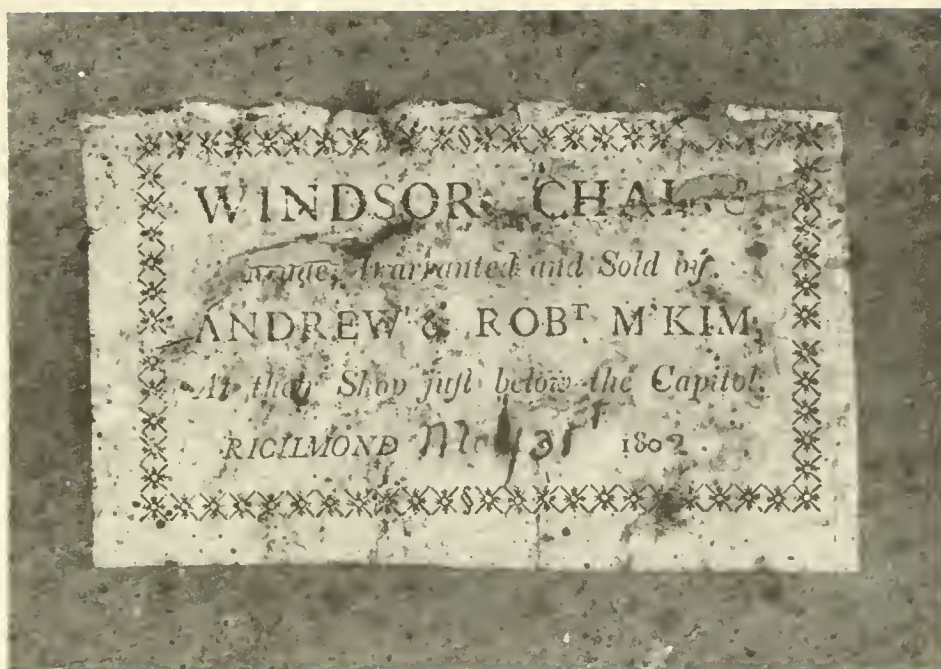 WINDSOR CHAIRS
warranted and Sold by
ANDREW & ROBᵀ MᶜKIM,
At their Shop juſt below the Capitol,
RICHMOND May 31ˢᵗ 1802